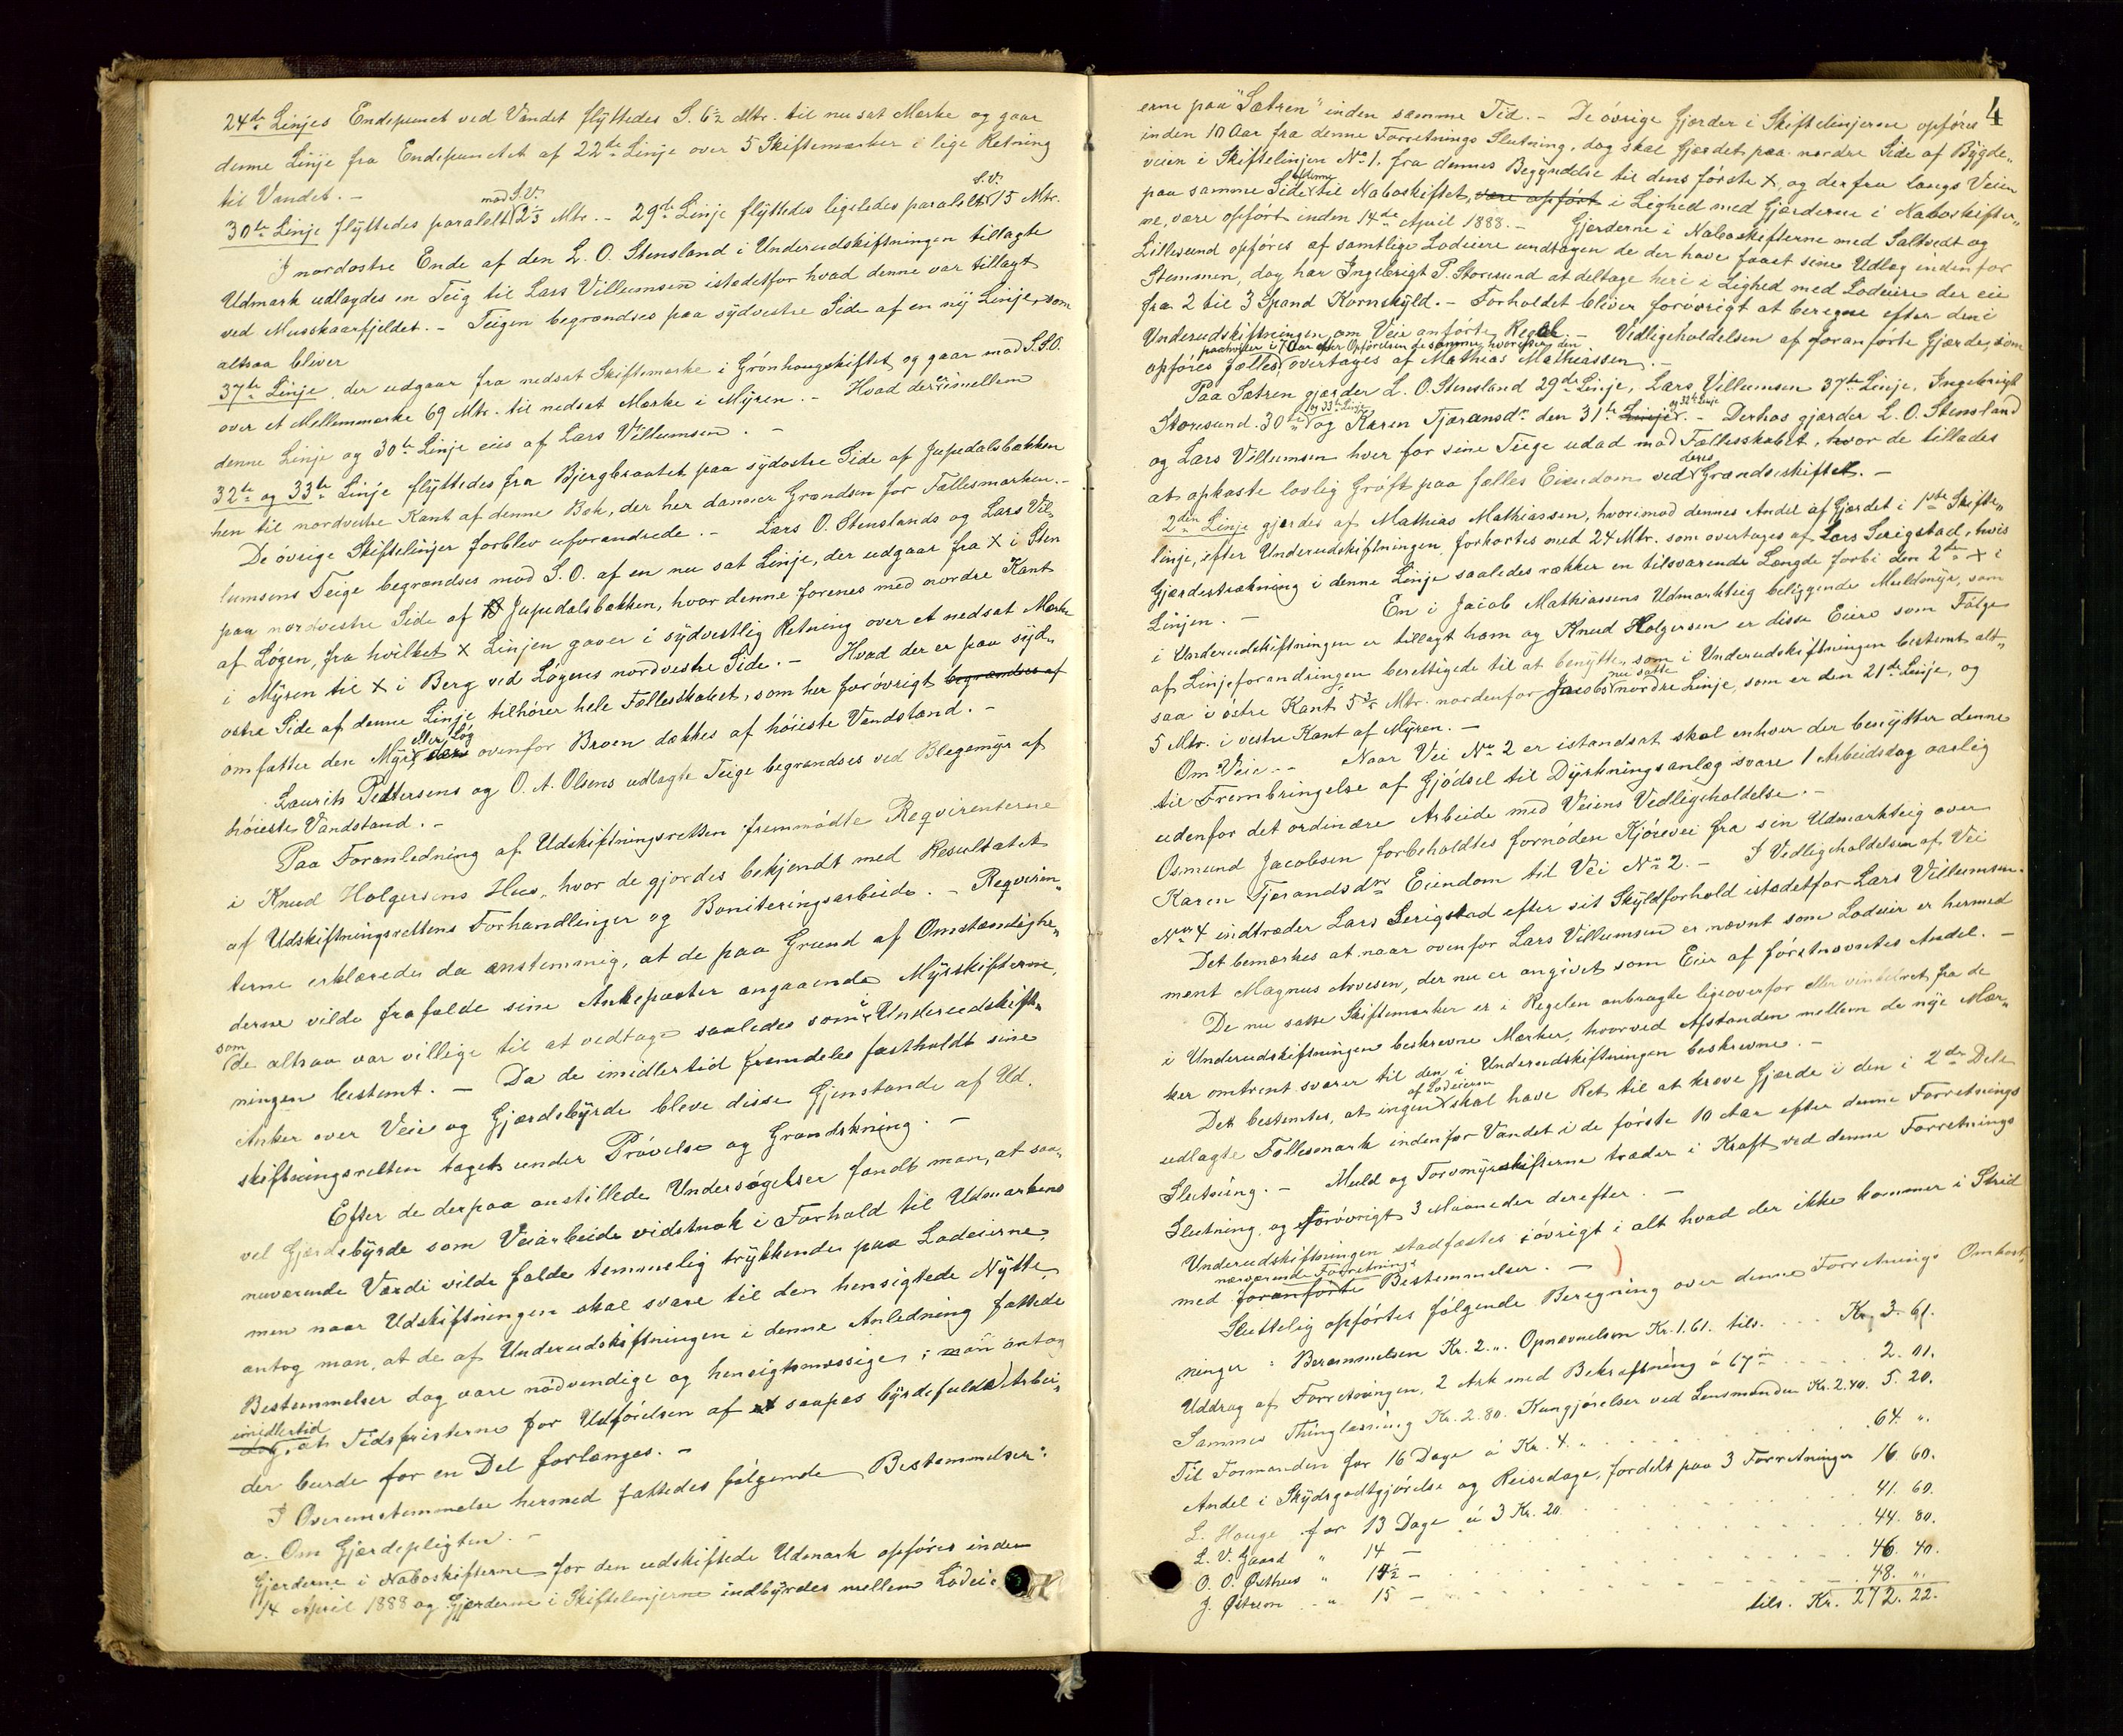 24de Linjes Endepunct ved Vandet flyttedes S. 6½ Mtr. til nu sat Mærke og gaar
denne Linje fra Endepunctet af 22de Linje over 5 Skiftemærker i lige Retning
til Vandet. –
30te Linje flyttedes paralelt mod S.V. 2⅓ Mtr. – 29de Linje flyttedes ligeledes paralelt S.V. 15 Mtr.
I nordostre Ende af den L. O. Stensland i Underudskiftningen tillagte
Udmark udlagdes en Teig til Lars Villumsen istedetfor hvad denne var tillagt
ved Musskaarfjeldet. – Teigen begrændses paa sydvestre Side af en ny Linje, som
altsaa bliver
37te Linje, der udgaar fra nedsat Skiftemærke i Grønhougskiftet og gaar mod S.S.O.
over et Mellemmærke 69 Mtr. til nedsat Mærke i Myren. – Hvad der er imellem
denne Linje og 30te Linje eies af Lars Villumsen. –
32te og 33te Linje flyttedes fra Bjergbraatet paa sydostre Side af Jupedalsbækken
hen til nordvestre Kant af denne Bæk, der her danner Grændsen for Fællesmarken. –
De øvrige Skiftelinjer forblev uforandrede. – Lars O. Stenslands og Lars Vil-
lumsens Teige begrændses mod S.O. af en nu sat Linje, der udgaar fra X i Sten
paa nordvestre Side af Jupedalsbækken, hvor denne forenes med nordre Kant
af Løgen, fra hvilket X Linjen gaaer i sydvestlig Retning over et nedsat Mærke
i Myren til X i Berg ved Løgens nordvestre Side. – Hvad der er paa syd-
ostre Side af denne Linje tilhører hele Fællesskabet, som her forøvrigt begrændses af
omfatter den Myr eller Løg der ovenfor Broen dækkes af høieste Vandstand. –
Laurits Pedtersens og O. A. Olsens udlagte Teige begrændses ved Blegemyr af
høieste Vandstand. –
Paa Foranledning af Udskiftningsretten fremmødte Reqvirenterne
i Knud Holgersens Hus, hvor de gjordes bekjendt med Resultatet
af Udskiftningsrettens Forhandlinger og Boniteringsarbeide. – Reqviren-
terne erklærede da enstemmig, at de paa Grund af Omstændighe-
derne vilde frafalde sine Ankeposter angaaende Myrskifterne,
som de altsaa var villige til at vedtage saaledes som i Underudskift-
ningen bestemt. – Da de imidlertid fremdeles fastholdt sine
Anker over Veie og Gjærdebyrde bleve disse Gjenstande af Ud-
skiftningsretten taget under Prøvelse og Grandskning. –
Efter de derpaa anstillede Undersøgelser fandt man, at saa-
vel Gjærdebyrde som Veiarbeide vidstnok i Forhold til Udmarkens
nuværende Værdi vilde falde temmelig trykkende paa Lodeierne,
men naar Udskiftningen skal svare til den hensigtede Nytte,
antog man, at de af Underudskiftningen i denne Anledning fattede
Bestemmelser dog vare nødvendige og hensigtsmæssige; man antog
imidlertid dog, at Tidsfristerne for Udførelsen af et saapas byrdefuldt Arbei-
der burde for en Del forlænges. –
I Overenstemmelse hermed fattedes følgende Bestemmelser:
a. Om Gjærdepligten. –
Gjærderne i Naboskifterne for den udskiftede Udmark opføres inden
14 April 1888 og Gjærderne i Skiftelinjerne indbyrdes mellem Lodei-
4
erne paa "Sætren" inden samme Tid. – De øvrige Gjærder i Skiftelinjerne opføres
inden 10 Aar fra denne Forretnings Slutning, dog skal Gjærdet paa nordre Side af Bygde-
veien i Skiftelinjen No 1. fra dennes Begyndelse til dens første X, og derfra langs Veien
paa samme Side af denne til Naboskiftet, være opført i Lighed med Gjærderne i Naboskifter-
ne, være opført inden 14de April 1888. – Gjærderne i Naboskifterne med Saltvedt og
Lillesund opføres af samtlige Lodeiere undtagen de der have faaet sine Udlæg indenfor
Stemmen, dog har Ingebrigt P. Storesund at deltage heri i Lighed med Lodeiere der eie
fra 2 til 3 Spand Kornskyld. – Forholdet bliver forøvrigt at beregne efter den i
Underudskiftningen om Veie anførte Regel. – Vidligeholdelsen af foranførte Gjærde, som
opføres fælles, paahviler i 10 Aar efter Opførelsen de samme, hvorefter den overtages af Mathias Mathiassen. –
Paa Sætren gjærder L. O. Stensland 29de Linje, Lars Villumsen 37te Linje, Ingebrigt
Storesund 30te og 33te Linje og Karen Tjerandsdr den 31te Linje og 32te Linje. – Derhos gjærder L. O. Stensland
og Lars Villumsen hver for sine Teige udad mod Fællesskabet, hvor de tillades
at opkaste lovlig Grøft paa fælles Eiendom ved deres Grændseskiftet. –
2den Linje gjærdes af Mathias Mathiassen, hvorimod dennes Andel af Gjærdet i 1ste Skifte-
linje, efter Underudskiftningen, forkortes med 24 Mtr. som overtages af Lars Serigstad, hvis
Gjærdestrækning i denne Linje saaledes rækker en tilsvarende Længde forbi den 2den X i
Linjen. – En i Jacob Mathiassens Udmarkteig beliggende Muldmyr, som
i Underudskiftningen er tillagt ham og Knud Holgersen er disse Eiere som Følge
af Linjeforandringen berettigede til at benytte, som i Underudskiftningen bestemt alt-
saa i østre Kant 5⅔ Mtr. nordenfor Jacobs nu satte nordre Linje, som er den 21de Linje, og
5 Mtr. i vestre Kant af Myren. –
Om Veie. – Naar Vei No 2 er istandsat skal enhver der benytter denne
til Frembringelse af Gjødsel til Dyrkningsanlæg svare 1 Arbeidsdag aarlig
udenfor det ordinære Arbeide med Veiens Vedligeholdelse. –
Osmund Jacobsen forbeholdtes fornøden Kjørevei fra sin Udmarkteig over
Karen Tjerandsdrs Eiendom til Vei No 2. – I Vedligeholdelsen af Vei
No 4 indtræder Lars Serigstad efter sit Skyldforhold istedetfor Lars Villumsen.
Det bemærkes at naar ovenfor Lars Villumsen er nævnt som Lodeier er hermed
ment Magnus Arvesen, der nu er angivet som Eier af førstnævntes Andel. –
De nu satte Skiftemærker er i Regelen anbragte ligeoverfor eller vinkelret fra de
i Underudskiftningen beskrevne Mærker, hvorved Afstanden mellem de nye Mær-
ker omtrent svarer til den i Underudskiftningen beskrevne. –
Det bestemtes, at ingen af Lodeierne skal have Ret til at kræve Gjærde i den i 2de Dele
udlagte Fællesmark indenfor Vandet i de første 10 Aar efter denne Forretnings
Slutning. – Muld og Torvmyrskifterne træder i Kraft ved denne Forretnings
Slutning, og forøvrigt 3 Maaneder derefter. –
Underudskiftningen stadfæstes iøvrigt i alt hvad der ikke kommer i Strid
med foranførte nærværende Forretnings Bestemmelser. –
Sluttelig opførtes følgende Beregning over denne Forretnings Omkost-
ninger: Berammelsen Kr. 2.". Opnævnelsen Kr. 1.61. tils. . . . . Kr. 3. 61.
Uddrag af Forretningen, 2 Ark med Bekræftning á 67 øre . . . . 2. 01.
Sammes Thinglæsning Kr. 2.80. Kungjørelser ved Lensmanden Kr. 2.40. 5. 20.
Til Formanden for 16 Dage á Kr. 4. " . . . . 64. ".
Andel i Skydsgodtgjørelse og Reisedage, fordelt paa 3 Forretninger 16. 60.
L. Hauge for 13 Dage á 3 Kr. 20 . . . . 41. 60.
L. V. Gaard " 14 – . . . . 44. 80.
O. O. Østhus " 14½ – . . . . 46. 40.
J. Østrem " 15 – . . . . 48. ".
tils. Kr. 272. 22.